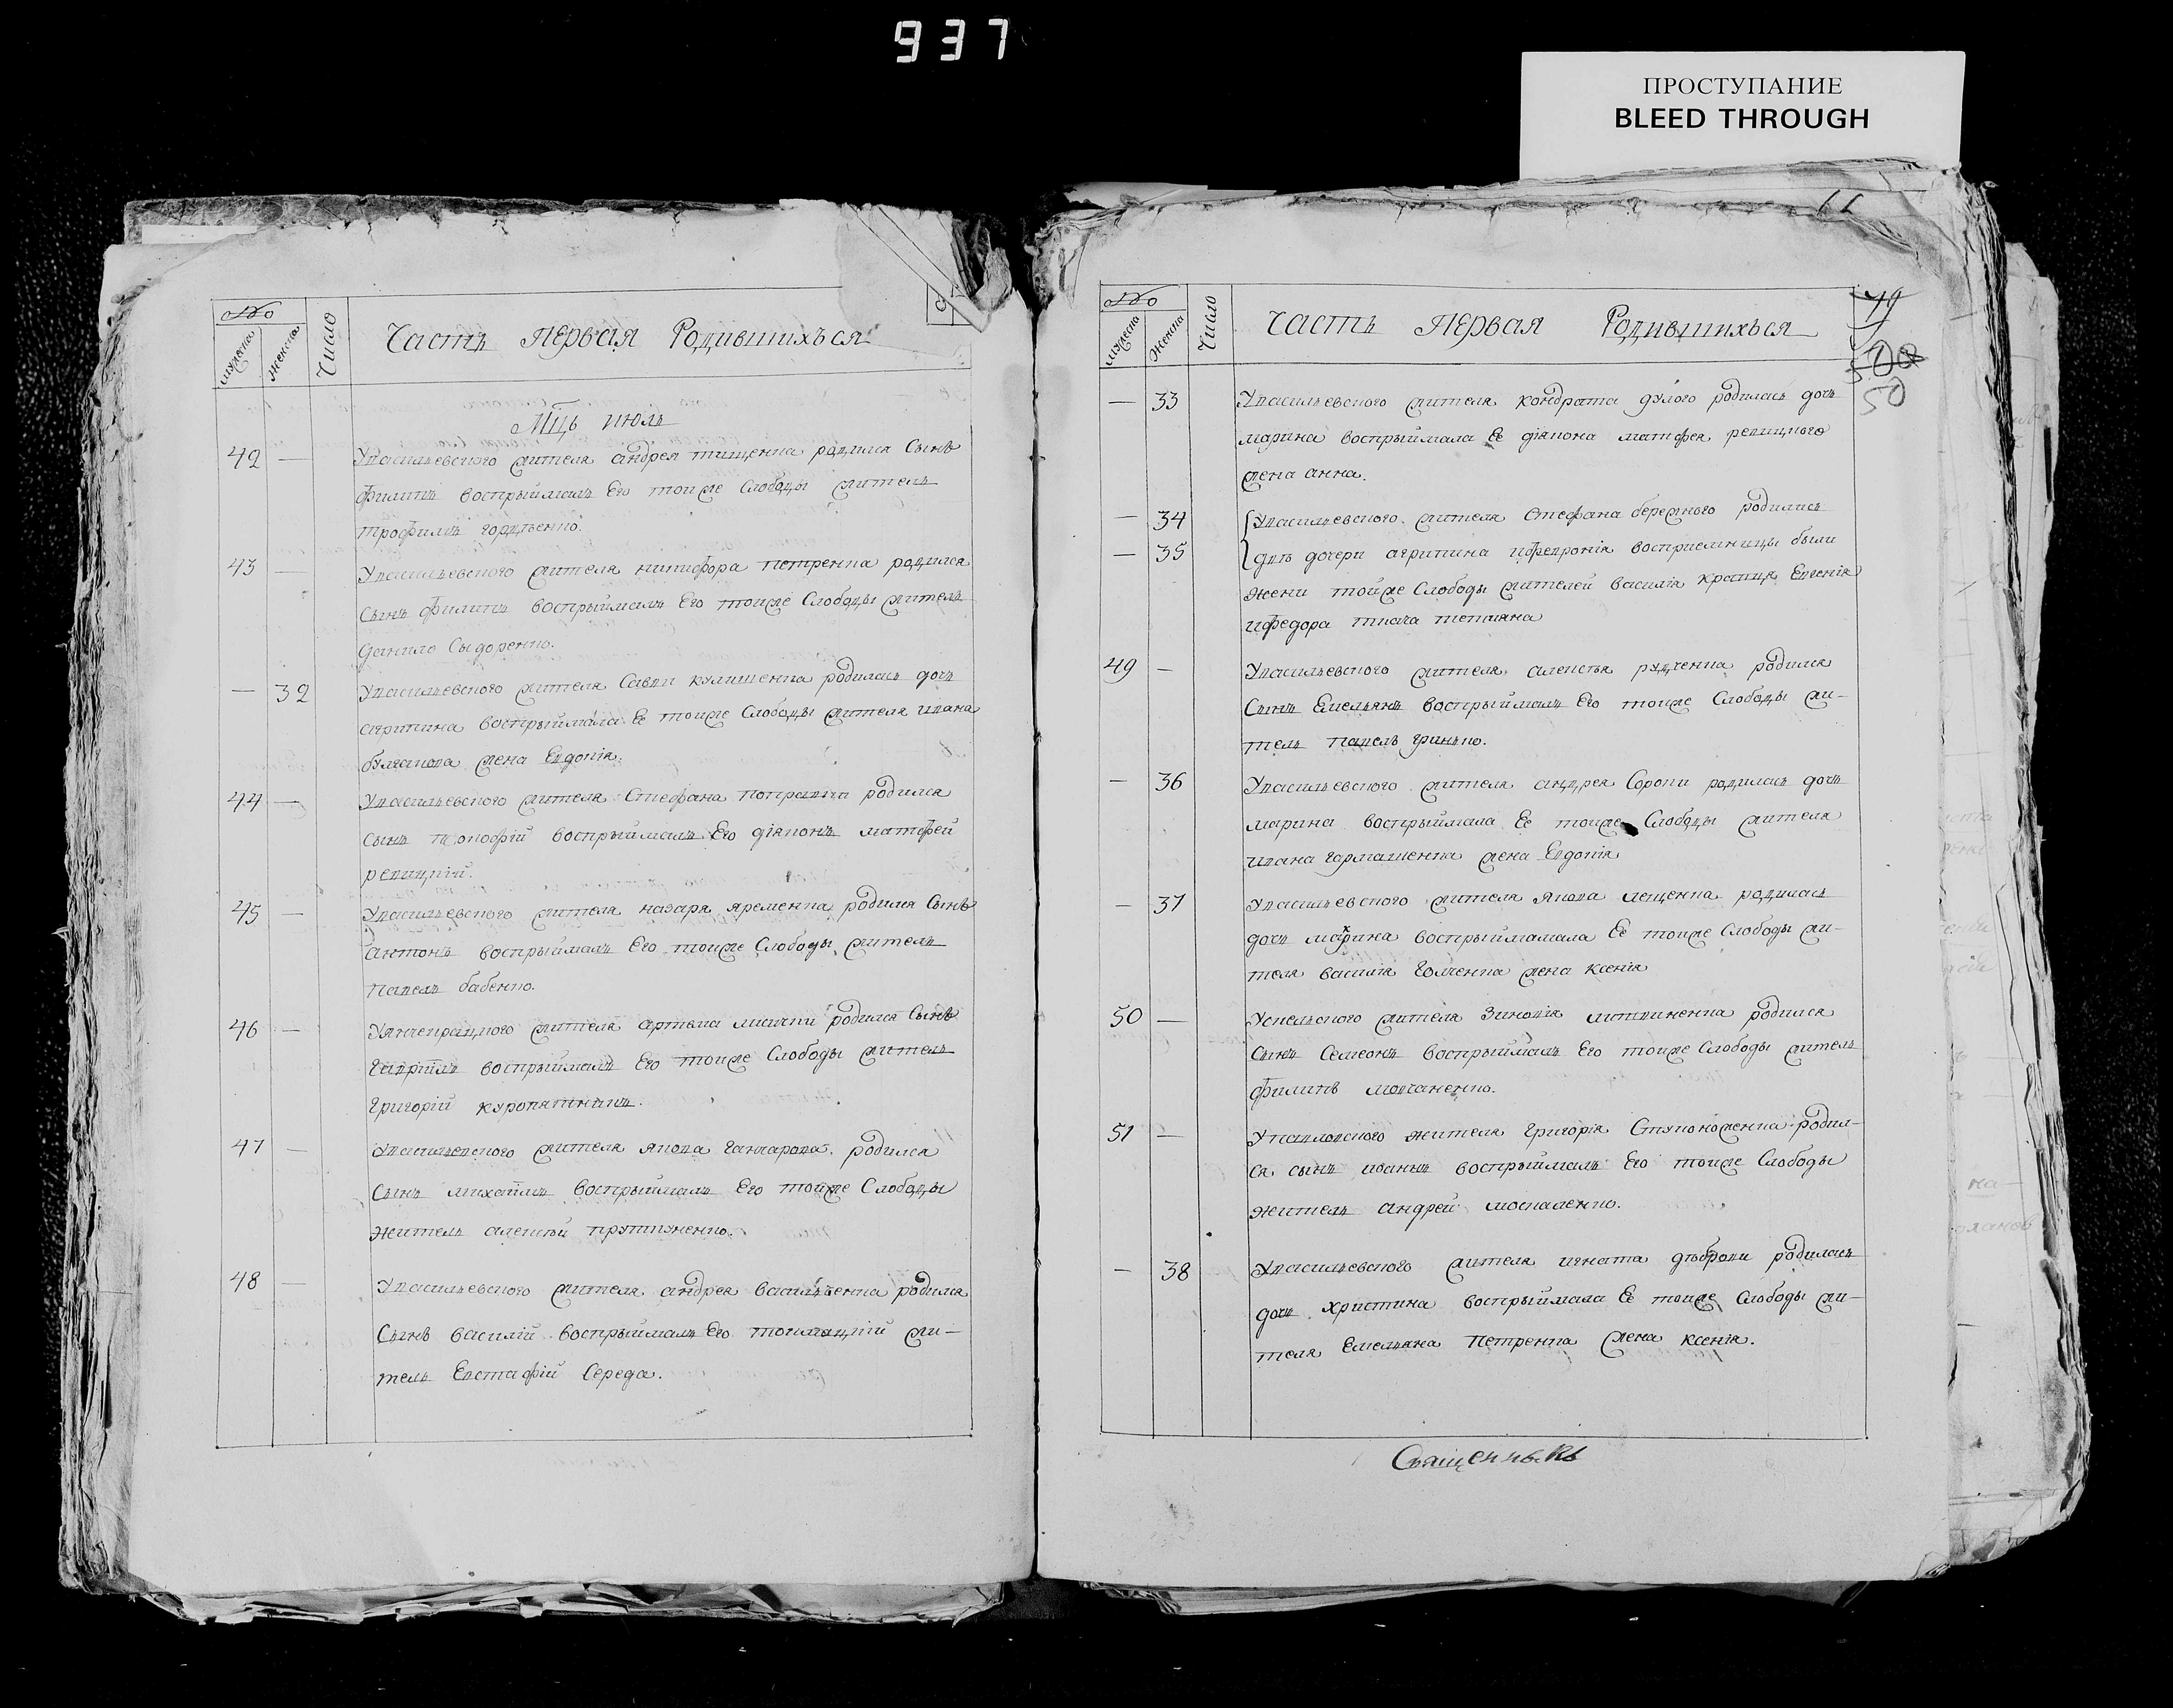 937
ПРОСТУПАНИЕ
BLEED THROUGH
№
мужеска
женска
Число
Часть первая Родившихъся
Мць июль
42 — Увасильевского жителя андрея тищенка родился Сынъ
филипъ воспрыймалъ Его тоиже Слободы житель
трофимъ гордѣенко.
43 — Увасильевского жителя никифора петренка родился
Сынъ филипъ воспрыймалъ Его тоиже Слободы житель
данило Сыдоренко.
— 32 Увасильевского жителя Савки кулишенка родилась дочь
агрипина воспрыймала Ее тоиже Слободы жителя ивана
булгакова жена Евдокія.
44 — Увасильевского жителя Стефана родился
сынъ прокофій воспрыймалъ Его діяконъ матфей
ревицкій.
45 — Увасильевского жителя назара яременка родился Сынъ
антонъ воспрыймалъ Его тоиже Слободы житель
павелъ бабенко.
46 — жителя артема родился Сынъ
Гаврїилъ воспрыймалъ Его тоиже Слободы житель
григорій куропятникъ.
47 — Увасильевского жителя якова ганчарова родился
Сынъ михаилъ воспрыймалъ Его тоиже Слободы
житель алексѣй
48 — Увасильевского жителя андрея василченка родился
Сынъ василій воспрыймалъ Его жи-
тель Евстафій Середа.
11
№
мужеска
женска
Число
Часть первая Родившихъся
49
50
— 33 Увасильевского жителя кондрата дулого родилась дочь
марина воспрыймала Ее діякона матфея ревицкого
жена анна.
— 34 Увасильевского жителя Стефана бережного родились
— 35 двѣ дочери агрипина ифевронія восприемницы были
жени тойже Слободы жителей василія кравца Евгенія
ифедора ткача текляна
49 — Увасильевского жителя алексѣя рудченка родился
Сынъ Емельянъ воспрыймалъ Его тоиже Слободы жи-
тель павелъ гринько.
— 36 Увасильевского жителя андрея Сороки родилась дочь
марина воспрыймала Ее тоиже Слободы жителя
ивана гармашенка жена Евдокія
— 37 Увасильевского жителя якова лещенка родилась
дочь марина воспрыймамала Ее тоиже Слободы жи-
теля василія жена ксенія
50 — жителя Зиновія литвиненка родился
Сынъ Семеонъ воспрыймалъ Его тоиже Слободы житель
филипъ мовчаненко.
51 — Упавловского жителя григорія родил-
ся сынъ иоаннъ воспрыймалъ Его тоиже Слободы
житель андрей москаленко.
— 38 Увасильевского жителя игната дѣбровы родилась
дочь христина воспрыймала Ее тоиже Слободы жи-
теля Емельяна петренка жена ксенія.
Священникъ